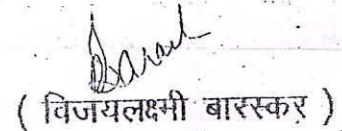 ( विजयलक्ष्मी बारस्कर )